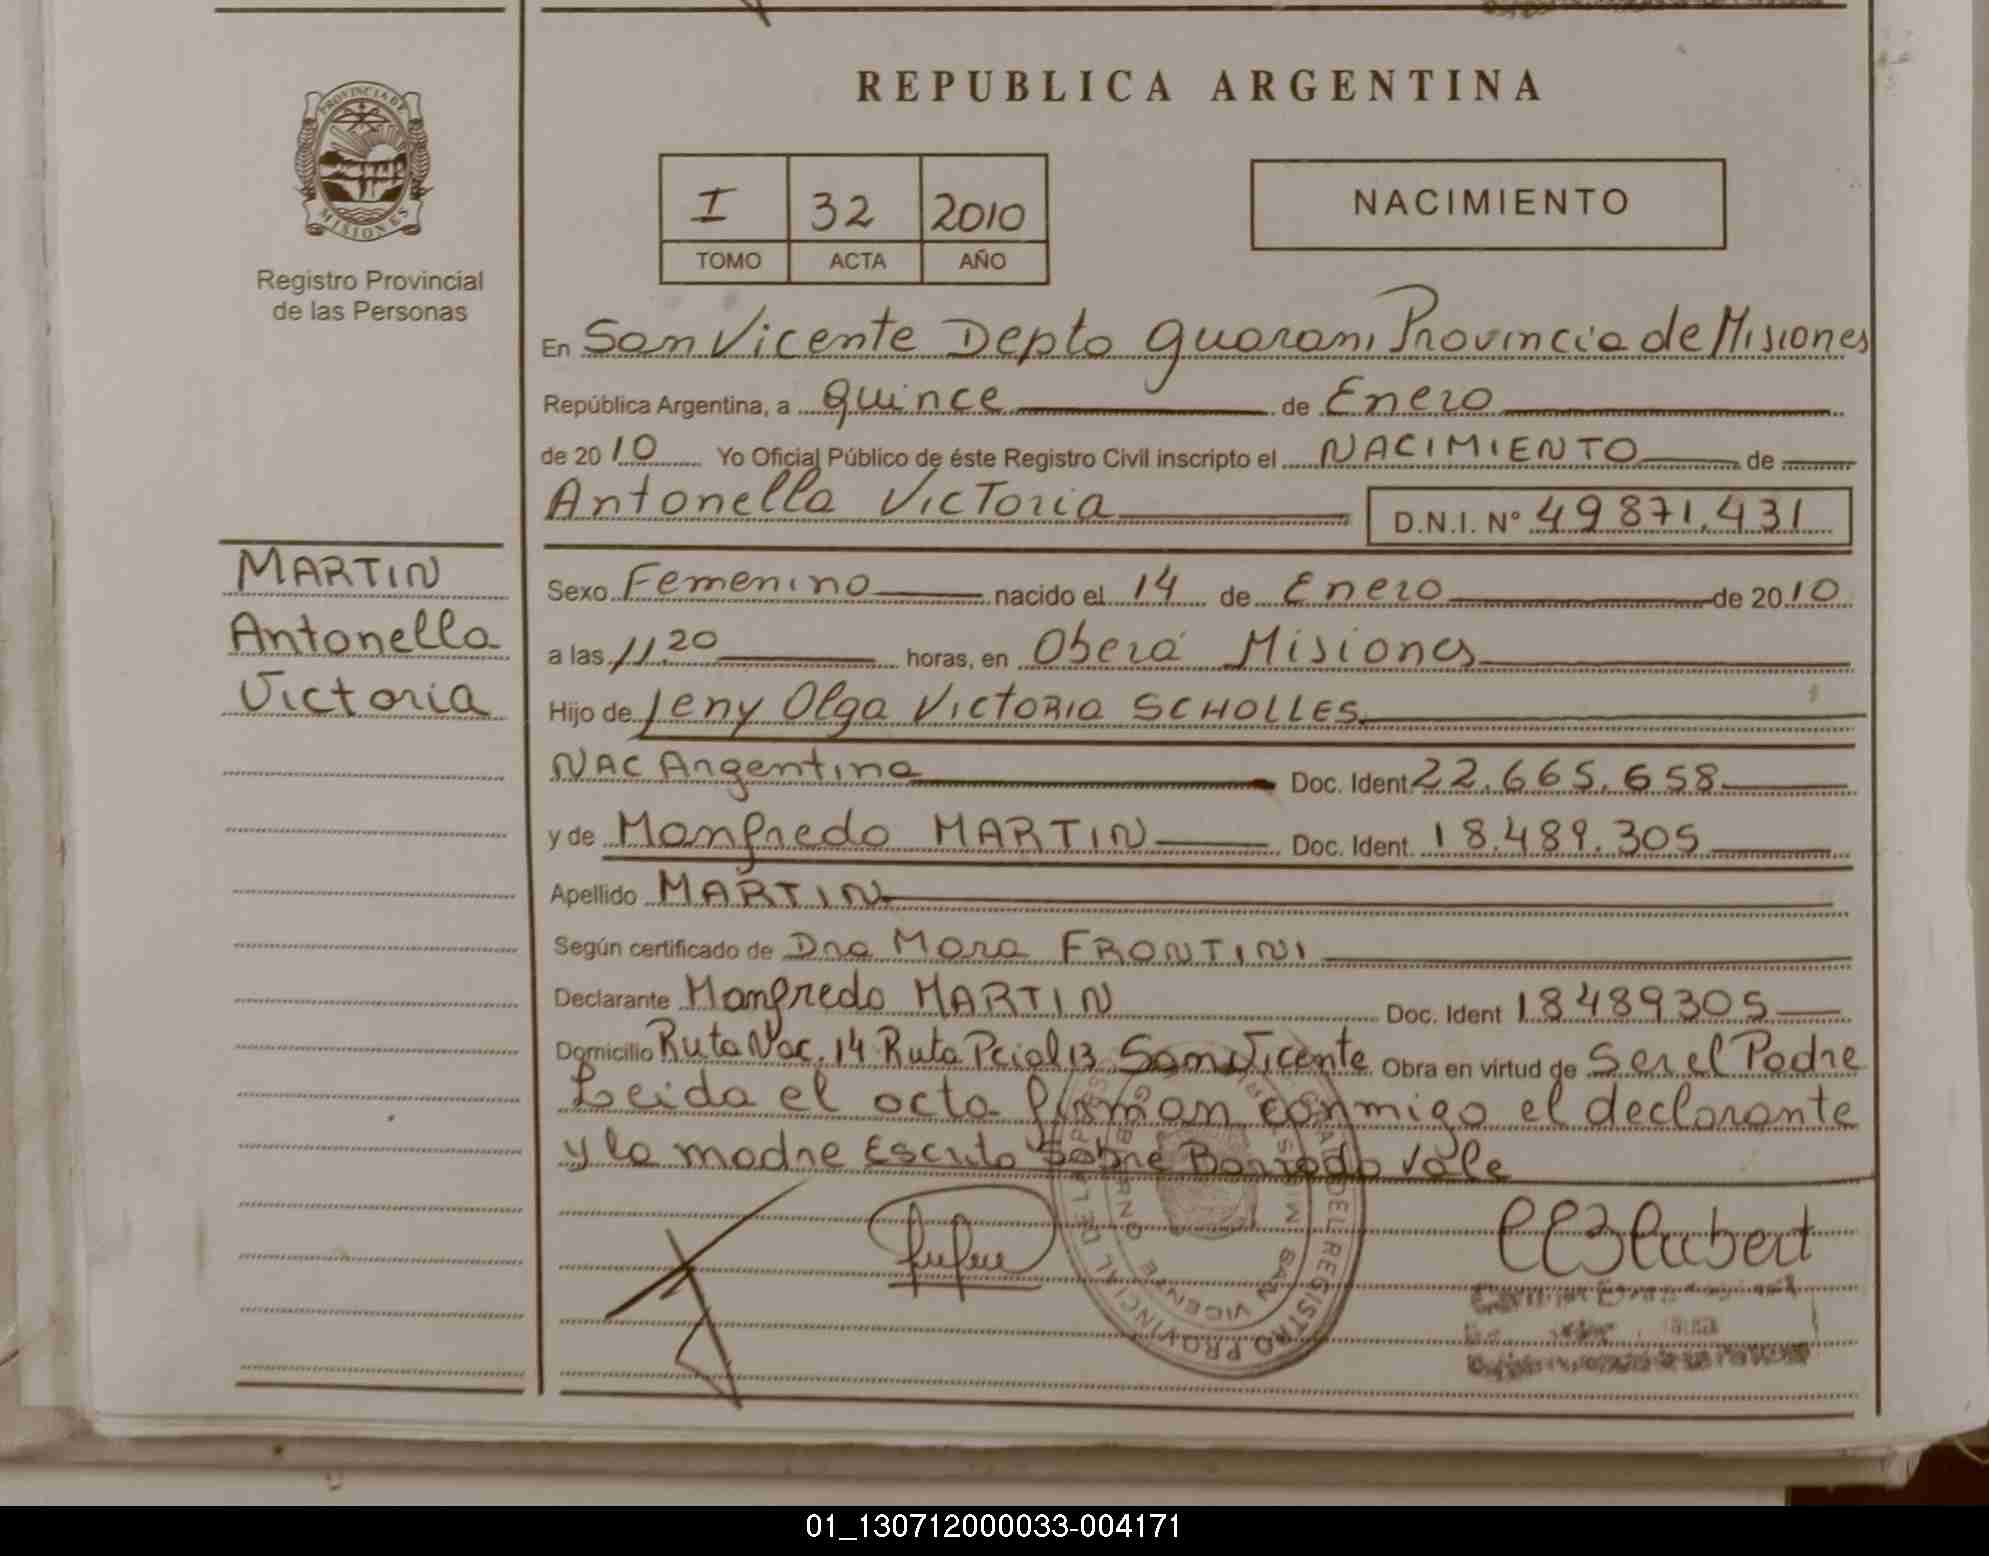 REPUBLICA ARGENTINA
PROVINCIA DE MISIONES
Registro Provincial
de las Personas
I 32 2010
TOMO ACTA AÑO
NACIMIENTO
En San Vicente Depto Guarani Provincia de Misiones
República Argentina, a Quince de Enero
de 2010 Yo Oficial Público de éste Registro Civil inscripto el NACIMIENTO de
Antonella Victoria D.N.I. N° 49871.431
MARTIN
Antonella
Victoria
Sexo Femenino nacido el 14 de Enero de 2010
a las 11.20 horas, en Oberá Misiones
Hijo de Jeny Olga Victoria SCHOLLES
NAC Argentina Doc. Ident 22.665.658
y de Manfredo MARTIN Doc. Ident. 18.489.305
Apellido MARTIN
Según certificado de Dra Mara FRONTINI
Declarante Manfredo MARTIN Doc. Ident 18489305
Domicilio Ruta Nac. 14 Ruta Pcial 13 San Vicente Obra en virtud de Ser el Padre
Leida el acta firman conmigo el declarante
y la madre Escrito Sobre Borrado Vale
REGISTRO PROVINCIAL DE LAS
SAN VICENTE
01_130712000033-004171